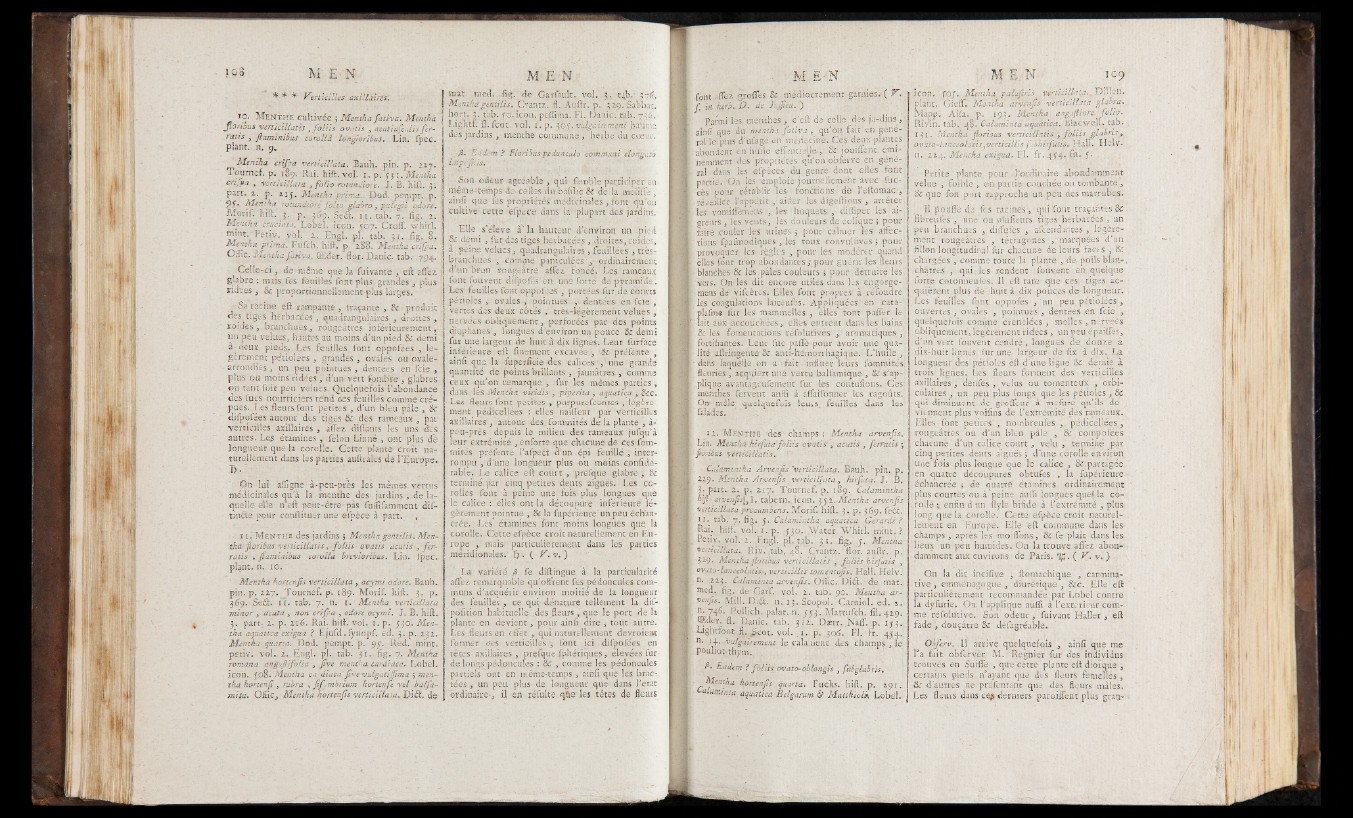 108 M E N
* * * Verticilles axillaires.
10. MENTHE cultivée ; Mentha sativa. Mentha
floribus verticillatis , foliis ovatis , acutiusculis ser-
ratis , staminibus corollâ longioribus. Lin. spec.
plant. n. 9.
Mentha crispa verticillata. Bauh. pin. p. 227.
Tournef. p. 189. Rai. hist. vol. 1. p. 531. Mentha
crispa , verticillata , folio rotundiore. J. B. hist. 3.
part. 2. p. 215. Mentha prima. Dod. pempt. p.
95. Mentha rotundiore folio glabro, pulegii odore.
Morif. hist. 3. p. 369. Sect. 11. tab. 7. fig. 2.
Mentha cruciata. Lobel. Icon. 507. Cross. whirl.
mint. Petiv. vol. 2. Engl. pl. tab. 31. fig. 8.
Mentha prima. Fusch. hist. p. 288. Mentha crispa.
Offic. Mentha sativa. Œlder. flor. Danic. tab. 794.
Celle-ci , de même que la suivante , est assez
glabre : mais ses feuilles sont plus grandes , plus
ridées , & proportionnellement plus larges.
Sa racine est rampante , traçante , & produit
des tiges herbacées , quadrangulaires , droites ,
roides , branchues , rougeâtres inférieurement ,
un peu velues, hautes au moins d'un pied & demi
à deux pieds. Les feuilles sont opposées , lé-
gèrement pétiolées , grandes , ovales ou ovale-
arrondies , un peu pointues , dentées en scie ,
plus ou moins ridées , d'un vert sombre , glabres
ou tant soit peu velues. Quelquefois l'abondance
des sucs nourriciers rend ces feuilles comme cré-
pues. Les fleurs sont petites , d'un bleu pâle , &
disposées autour des tiges & des rameaux , par
verticilles axillaires , assez distans les uns des
autres. Les étamines , selon Linné , ont plus de
longueur que la corolle. Cette plante croît na-
turellement dans les parties australes de l'Europe.
On lui assigne à-peu-près les mêmes vertus
médicinales qu'à la menthe des jardins , de la-
quelle elle n'est peut-être pas suffisamment dis-
tincte pour constituer une espèce à part.
11. MENTHE des jardins ; Mentha gentilis. Men-
tha floribus verticillatis , foliis ovatis acutis , ser-
ratis , staminibus corolla brevioribus. Lin. spec.
plant. n. 10.
Mentha hortensis verticillata , ocymi odore. Bauh.
pin. p. 227. Tournef. p. 189. Morif. hist. 3. p.
369. Sect. 11. tab. 7. n. 1. Mentha verticillata
minor , acuta , non crispa , odore ocymi. J. B. hist.
3. part. 2. p. 216. Rai. hist. vol. 1. p. 530. Men-
tha aquatica exigua ? Ejusd. synops. ed. 3. p. 232.
Mentha quarta. Dod. pempt. p. 95. Red. mint.
petiv. vol. 2. Engl. pl. tab. 31. fig. 7. Mentha
romana angustifolia , sive mentha cardiaca. Lobel.
icon. 508. Mentha
tha hortensis , rubra , sisymbrium hortense vel balsa-
mita. Offic. Mentha hortensis verticillata. Dict. de
M E N
mat med. fig. de Garsault. vol. 3. tab. 376.
Mentha gentilis. Crantz. fl. Austr. p. 329. Sabbat.
hort. 3. tab. 70. icon. pessima. Fl. Danic. tab. 736.
Lightf. fl. scot. vol. 1. p. 305. vulgairement baume
des jardins , menthe commune , herbe du cœur.
β. Eadem ? Floribus pedunculo communi elongato
impositis.
Son odeur agréable , qui semble participer en
même-temps de celles du basilic & de la mélisse ,
ainsi que ses propriétés médicinales , font qu'on
cultive cette espèce dans la plupart des jardins.
Elle s'élève à la hauteur d'environ un pied
& demi , sur des tiges herbacées , droites, roides,
à peine velues , quadrangulaires , feuillées , très-
branchues , comme paniculées , ordinairement
d'un beau rougeâtre assez foncé. Les rameaux
sont souvent disposés en une sorte de pyramide.
Les feuilles sont opposées , portées sur de courts
pétioles , ovales , pointues , dentées en scie ,
vertes des deux côtés , très-légèrement velues ,
nervées obliquement , perforées par des points
diaphanes , longues d'environ un pouce & demi
sur une largeur de huit à dix lignes. Leur surface
inférieure est finement excavée , & présente ,
ainsi que la superficie des calices , une grande
quantité de points brillants , jaunâtres , comme
ceux qu'on remarque , sur les mêmes parties ,
dans les Mentha viridis , piperita , aquatica , &c.
Les fleurs sont petites , purpurescentes , légère-
ment pédicellées : elles naissent par verticilles
axillaires , autour des sommités de la plante , à-
peu-près depuis le milieu des rameaux jusqu'à
leur extrémité , ensorte que chacune de ces som-
mités présente l'aspect d'un épi feuillé , inter-
rompu , d'une longueur plus ou moins considé-
rable. Le calice est court , presque glabre , &
terminé par cinq petites dents aiguës. Les co-
rolles sont à peine une fois plus longues que
le calice : elles ont la découpure inférieure lé-
gèrement pointue , & la supérieure un peu échan-
crée. Les étamines sont moins longues que la
corolle. Cette espèce croît naturellement en Eu-
rope , mais particulierement dans les parties
méridionales. ♃. ( V. v. )
La variété β se distingue à la particularité
assez remarquable qu'offrent ses pédoncules com-
muns d'acquérir environ moitié de la longueur
des feuilles , ce qui dénature tellement la dis-
position habituelle des fleurs , que le port de la
plante en devient , pour ainsi dire , tout autre.
Les fleurs en effet , qui naturellement devroient
former des verticilles , sont ici disposées en
têtes axillaires , presque sphériques , élevées sur
de longs pédoncules : & , comme les pédoncules
partiels ont en même-temps , ainsi que les brac-
tées , un peu plus de longueur que dans l'état
ordinaire , il en résulte que les têtes de fleurs
M E N
sont assez grosses & médiocrement garnies. ( V.
s. in herb. D. de Jussieu. )
Parmi les menthes , c'est de celle des jardins ,
ainsi que du mentha sativa , qu'on fait en géné-
ral le plus d'usage en médecine. Ces deux plantes
abondent en huile essentielle , & jouissent émi-
nemment des propriétés qu'on observe en géné-
ral dans les espèces du genre dont elles font
partie. On les emploie journellement avec suc-
cès pour rétablir les fonctions de l'estomac ,
réveiller l'appétit , aider les digestions , arrêter
les vomissemens , les hoquets , dissiper les ai-
greurs , les vents , les douleurs de colique ; pour
faire couler les urines ; pour calmer les affec-
tions spasmodiques , les toux convulsives ; pour
provoquer les règles , pour les modérer quand
elles sont trop abondantes ; pour guérir les fleurs
blanches & les pâles couleurs ; pour détruire les
vers. On les dit encore utiles dans les engorge-
mens de viscères. Elles sont propres à résoudre
les coagulations laiteuses. Appliquées en cata-
plasme sur les mammelles , elles font passer le
lait aux accouchées , elles entrent dans les bains
& les fomentations résolutives , aromatiques ,
fortifiantes. Leur suc passe pour avoir une qua-
lité astringente & anti-hémorrhagique. L'huile ,
dans laquelle on a fait infuser leurs sommités
fleuries , acquiert une vertu balsamique , & s'ap-
plique avantageusement sur les contusions. Ces
menthes servent aussi à assaisonner les ragoûts.
On mêle quelquefois leurs feuilles dans les
salades.
12. MENTHE des champs ; Mentha arvensis.
Lin. Mentha hirsuta foliis ovatis , acutis , serratis ;
floribus verticillatis.
Calamintha Arvensis verticillata. Bauh. pin. p.
229. Mentha Arvensis verticillata , hirsuta. J. B.
3. part. 2. p. 217. Tournef. p. 189. Calamintha
tabern. icon. 352. Mentha arvensis
verticillata procumbens. Morif. hist. 3. p. 369. sect.
11. tab. 7. fig. 5. Calamintha aquatica Gerardi ?
Rai. hist. vol. 1. p. 530. Water Whirl. mint. ?
Petiv. vol. 2. Engl. pl. tab. 31. fig. 5. Mentha
verticillata. Riv. tab. 48. Crantz. flor. austr. p.
329. Mentha floribus verticillatis , foliis hirsutis ,
ovato-lanceolatis, verticillis tomentosis. Hall. Helv.
n. 223. Calamintha arvensis. Offic. Dict. de mat.
med. fig. de Gars. vol. 2. tab. 90. Mentha ar-
vensis. Mill. Dict. n. 13. Scopol. Carniol. ed. 2.
n. 736. Pollich. palat. n. 553. Mattusch. sil. 429.
Œder. fl. Danic. tab. 512. Dœrr. Nass. p. 153.
Lightfoot fl. Scot. vol. 1. p. 306. Fl. fr. 454.
n. 14. vulgairement le calament des champs , le
pouliot-thym.
β. Eadem ? foliis ovato-oblongis , subglabris.
Mentha hortensis quarta. Fuchs. hist. p. 291.
Calamintha aquatica Belgarum & Matthioli. Lobel.
M E N 109
icon. 505. Mentha palustris verticillata. Dillen.
plant. Giess. Mentha arvensis verticillata glabra.
Mapp. Alsa. p. 193. Mentha angustiore folio.
Rivin. tab. 48. Calamintha aquatica. Blacwell. tab.
Mentha floribus verticillatis , foliis glabris,
ovato-lanceolatis, verticillis Hall. Helv.
n. 224. Mentha exigua. Fl. fr. 454. 5.
Petite plante pour l'ordinaire abondamment
velue , foible , en partie couchée ou tombante ,
& que son port rapproche un peu des marrubes.
Il pousse de ses racines , qui sont traçantes &
fibreuses , une ou plusieurs tiges herbacées , un
peu branchues , diffuses , ascendantes , légère-
ment rougeâtres , tétragones , marquées d'un
sillon longitudinal sur chacune de leurs faces , &
chargées , comme toute la plante , de poils blan-
châtres , qui les rendent souvent en quelque
sorte cotonneuses. Il est rare que ces tiges ac-
quièrent plus de huit à dix pouces de longueur.
Les feuilles sont opposées , un peu pétiolées ,
ouvertes , ovales , pointues , dentées en scie ,
quelquefois comme crénelées , molles , nervées
obliquement, légèrement ridées , un peu épaisses,
d'un vert souvent cendré , longues de douze à
dix-huit lignes sur une largeur de six à dix. La
longueur des pétioles est d'une ligne & demie à
trois lignes. Les fleurs forment des verticilles
axillaires , denses , velus ou tomenteux , orbi-
culaires , un peu plus longs que les pétioles , &
qui diminuent de grosseur à mesure qu'ils de-
viennent plus voisins de l'extrémité des rameaux.
Elles sont petites , nombreuses , pédicellées ,
rougeâtres ou d'un bleu pâle , & composées
chacune d'un calice court , velu , terminé par
cinq petites dents aiguës ; d'une corolle environ
une fois plus longue que le calice , & partagée
en quatre découpures obtuses , la supérieure
échancrée ; de quatre étamines ordinairement
plus courtes ou à peine aussi longues que la co-
rolle ; enfin d'un style bifide à l'extrémité , plus
long que la corolle. Cette espèce croît naturel-
lement en Europe. Elle est commune dans les
champs , après les moissons , & se plaît dans les
lieux un peu humides. On la trouve assez abon-
damment aux environs de Paris. ♃. ( V. v. )
On la dit incisive , stomachique , carmina-
tive , emménagogue , diurétique , &c. Elle est
particulièrement recommandée par Lobel contre
la dysurie. On l'applique aussi à l'extérieur com-
me résolutive. Son odeur , suivant Haller , est
fade , douçâtre & désagréable.
Observ. Il arrive quelquefois , ainsi que me
l'a fait observer M. Regnier sur des individus
trouvés en Suisse , que cette plante est dioïque ;
certains pieds n'ayant que des fleurs femelles ,
& d'autres ne présentant que des fleurs mâles.
Les fleurs dans ces derniers paroissent plus gran-